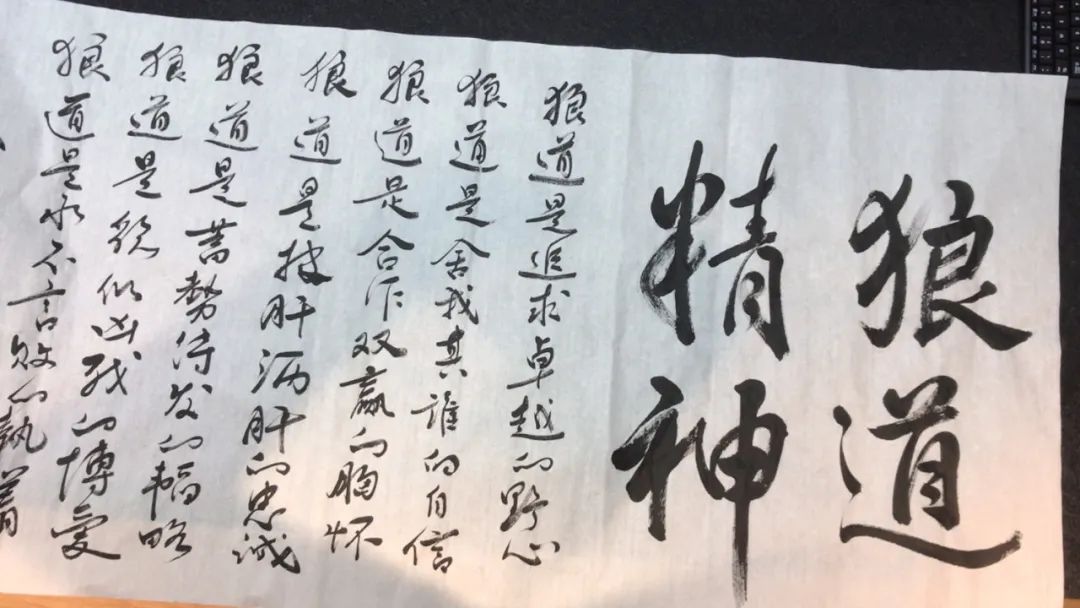 狼道
精神
狼道是追求卓越的野心
狼道是舍我其谁的自信
狼道是合作双赢的胸怀
狼道是披肝洒肝的忠诚
狼道是蓄势待发的韬略
狼道是貌似凶残的博爱
狼道是永不言败的执着